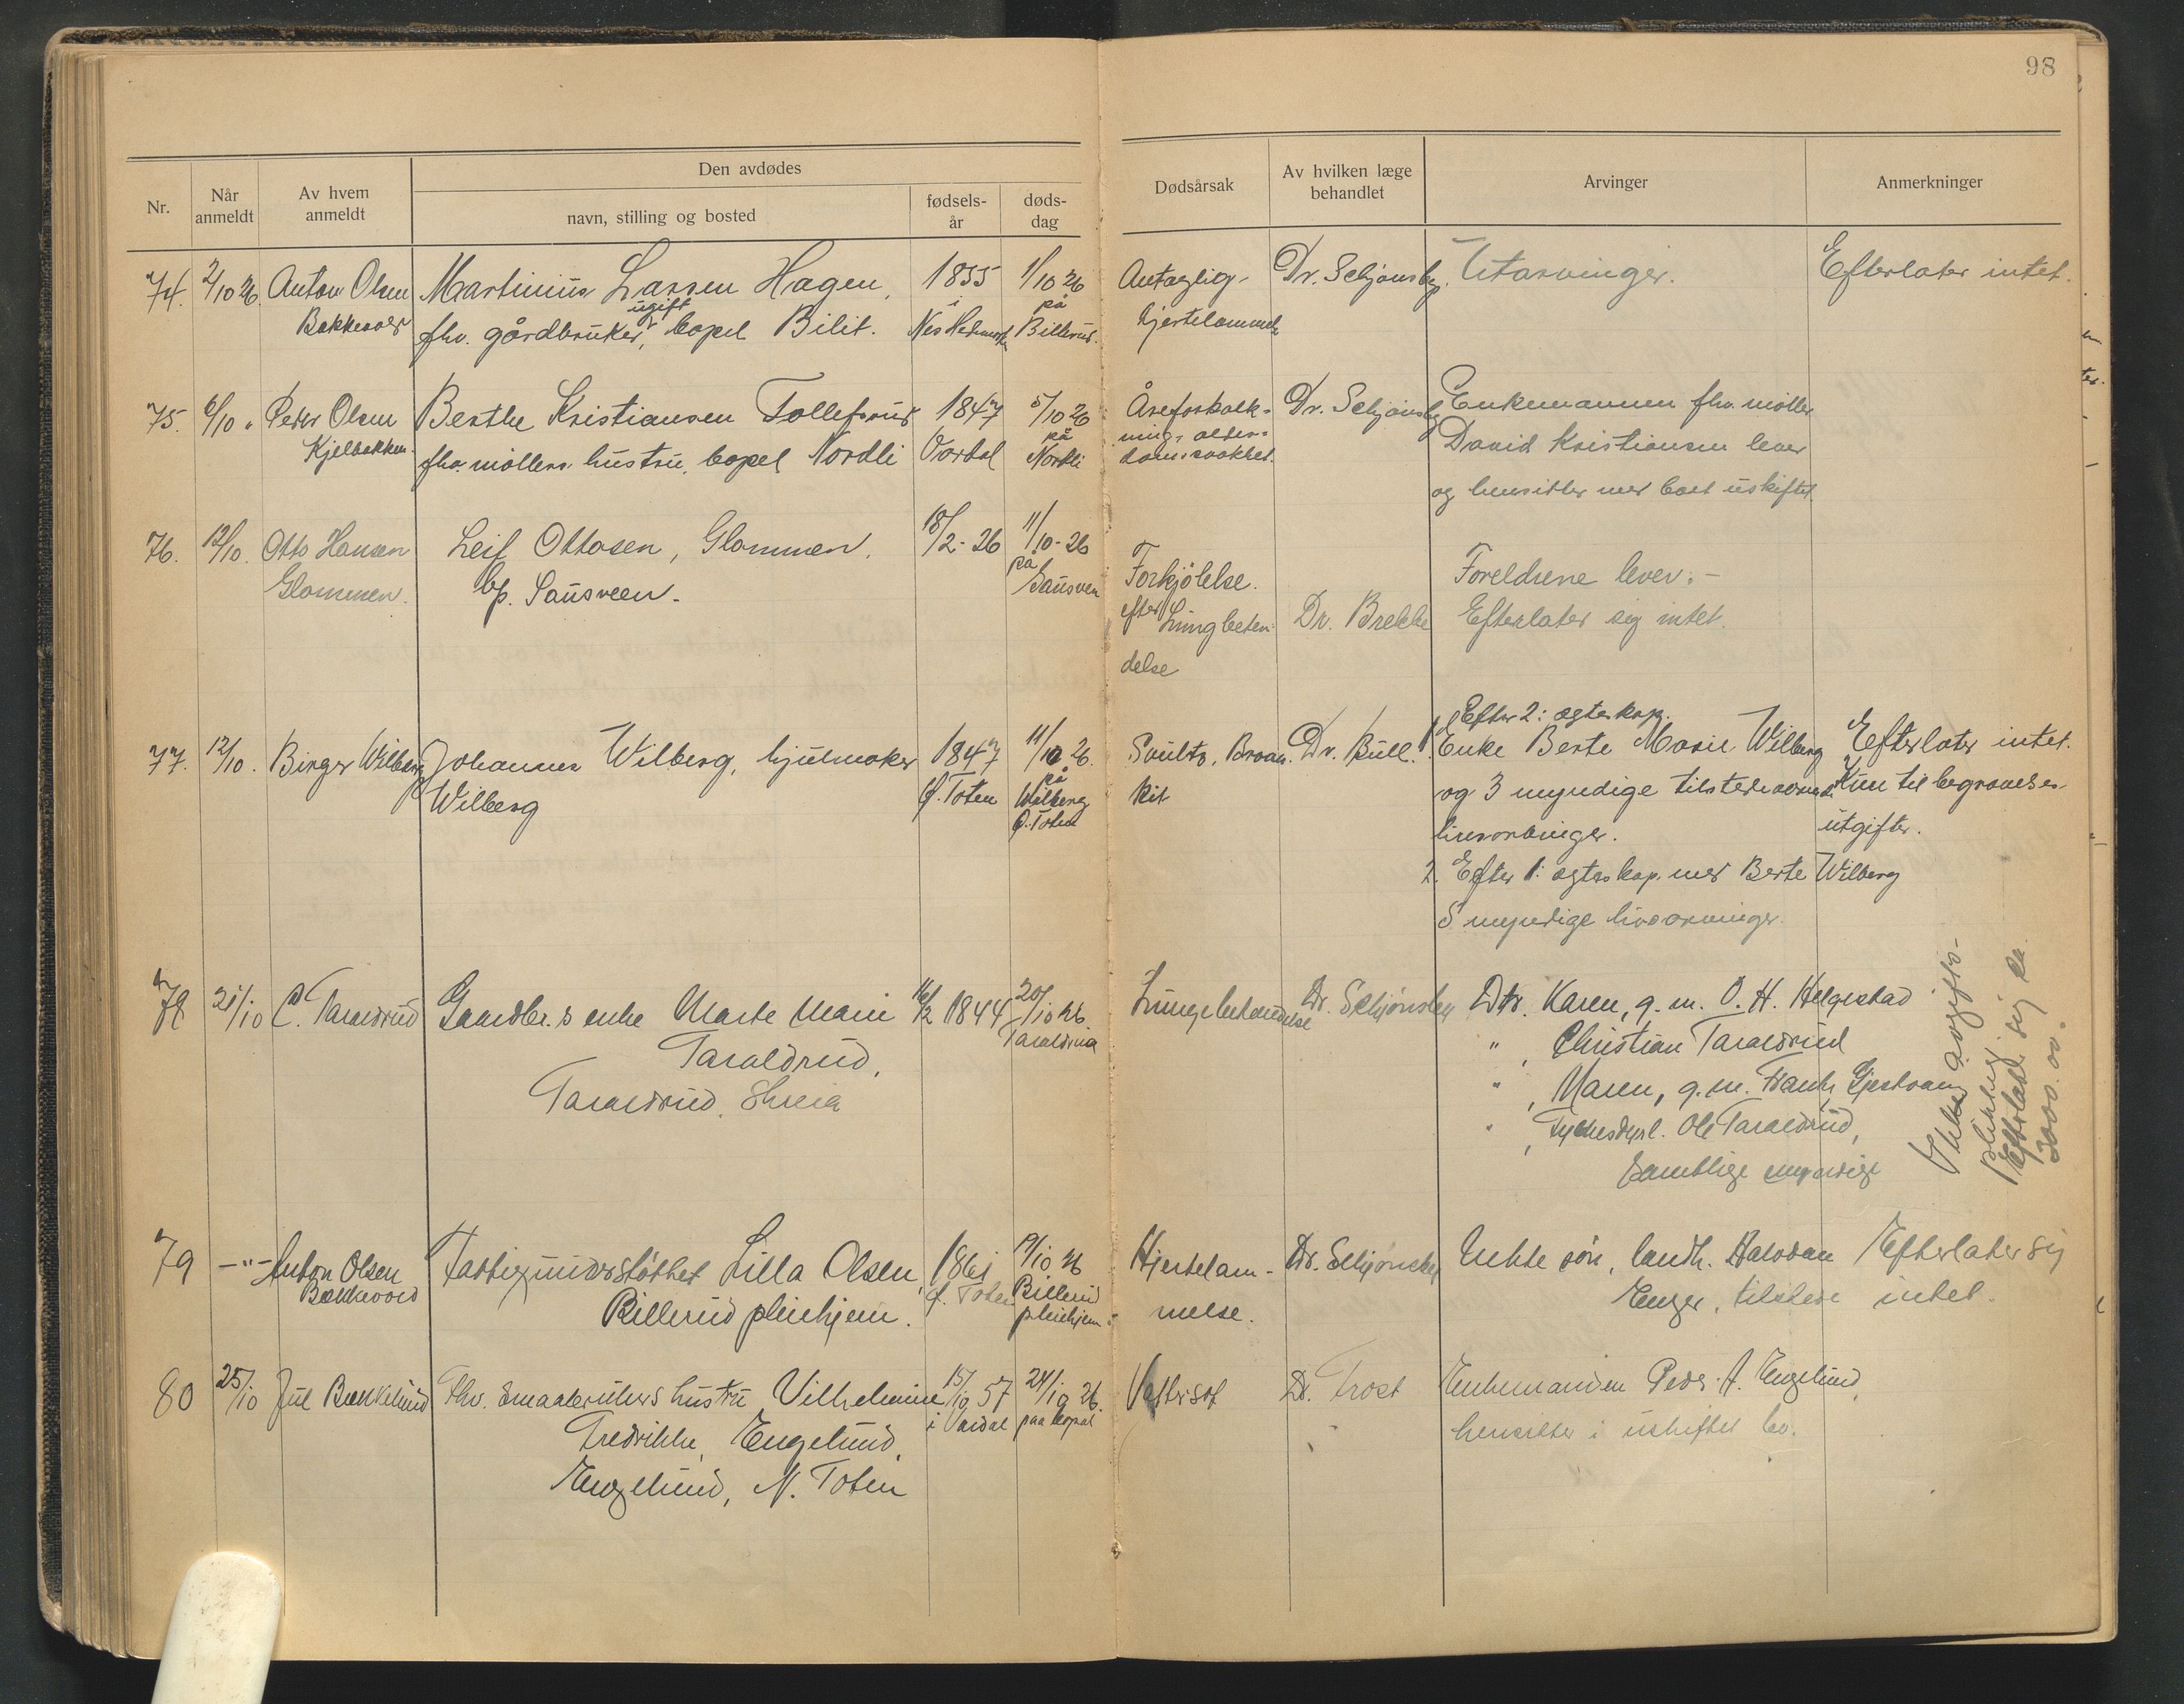 98
Den avdødes
Nr.
Når anmeldt
Av hvem anmeldt
navn, stilling og bosted
fødselsår
dødsdag
Dødsårsak
Av hvilken læge behandlet
Arvinger
Anmerkninger
74. 2/10 26 Anton Olsen Martinius Larsen Hagen, 1855 1/10 26 Antagelig Dr. Schjønsby. Utarvinger. Efterlater intet.
ugift i på
fhv. gårdbruker, bopel Bilit. Nes Hedmark Billerud. hjertelammelse
75. 6/10 " Peder Olsen Berthe Kristiansen Tollefsrud 1847 5/10 26 Åreforkalk- Dr. Schjønsby Enkemannen fhv. møller
Kjelbakken. fhv. møllers hustru, bopel Nordli Vardal på Nordli ning, alder- David Kristiansen lever
domssvakhet.
og hensitter med boet uskiftet
76. 12/10. Otto Hansen Leif Ottosen, Glommen. 18/2-26 11/10-26
Glommen. bp. Sausveen. på Sausveen Forkjølelse. Foreldrene lever.-
efter Lungbeten- Dr. Brekke Efterlater sig intet.
delse
Efter 2: egteskap.
77. 12/10. Birger Wilberg Johannes Wilberg, hjulmaker 1847 11/10 26. Dr. Bull. 1. Enke Berte Marie Wilberg Efterlater intet.
Wilberg Ø. Toten på Wilberg Ø. Toten og 3 myndige tilstedeværende Kun til begravelses
livsarvinger. utgifter.
2. Efter 1: egteskap med Berte Wilberg
5 myndige livsarvinger.
78 21/10 C. Taraldrud Gaardbr.s enke Marte Marie 16/2 1844 20/10 26. Lungebetændelse Dr. Schjønsby Dtr. Karen, g. m. O. H. Helgestad
Taraldrud, Taraldrud " , Christian Taraldrud
Taraldrud, Skreia " , Maren, g. m. Gjestvang
" , Ole Taraldrud,
Samtlige myndige
Ikke avgifts-
pliktig
Efterlater sig ca.
3000.00.
79 -"- Anton Olsen Fattigunderstøttet Lilla Olsen, 1861 9/10 26 Hjertelam- Dr. Schjønsby Enkte søn, landh. Halvdan Efterlater sig
Bakkevold Billerud pleiehjem. Ø. Toten Billerud pleiehjem. melse. Enger, tilstede intet.
80 25/10 Jul Bakkelund Fhv. smaabrukers hustru Vilhelmine 15/10 57 24/10 26. Vattersot Dr. Trost Enkemanden Peder A. Engelund,
Fredrikke Engelund, i Vardal paa bopæl hensitter i uskiftet bo.
Engelund, N. Toten